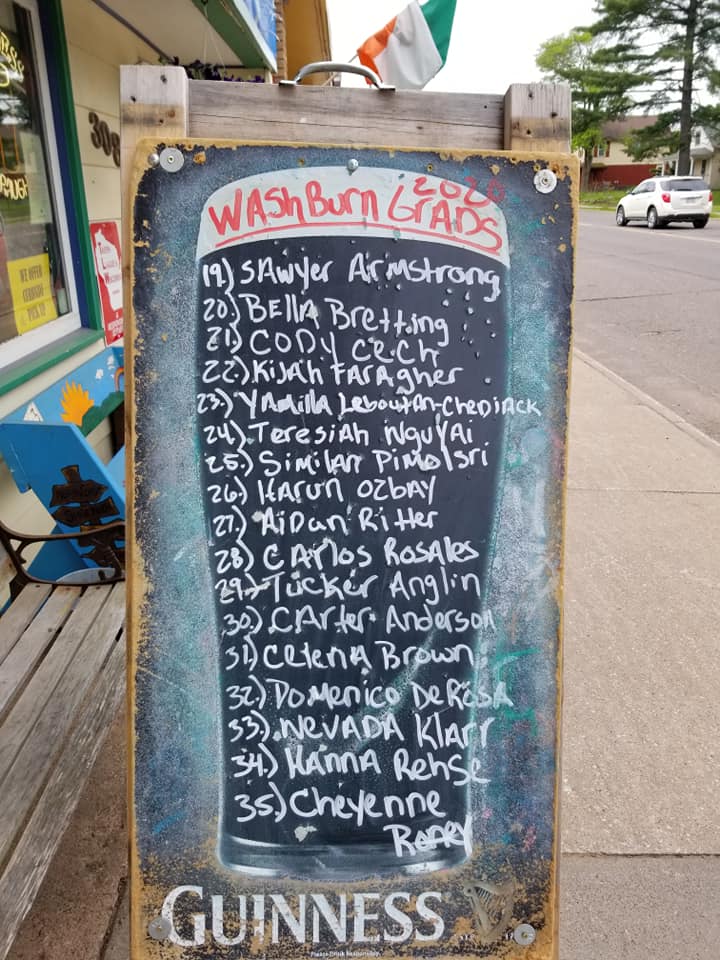 308
2020
WAShBurn GrADS
19.) SAwyer ArmStrong
20.) BEllA Bretting
21.) CODY CECh
22.) KiJAh FArAgher
23.) YAmillA Leboutan-ChenDiACK
24.) TeresiAh NguyAi
25.) SimilAn PimolSri
26.) HArun OzbAY
27.) AiDan Ritter
28.) CArlos RosAles
29.) Tucker Anglin
30.) CArter Anderson
31.) CelenA Brown
32.) DoMenico DeRosA
33.) NevADA Klarr
34.) HAnnA Rehse
35.) Cheyenne
Roney
GUINNESS
WE OFFER
CURBSIDE
PICK UP